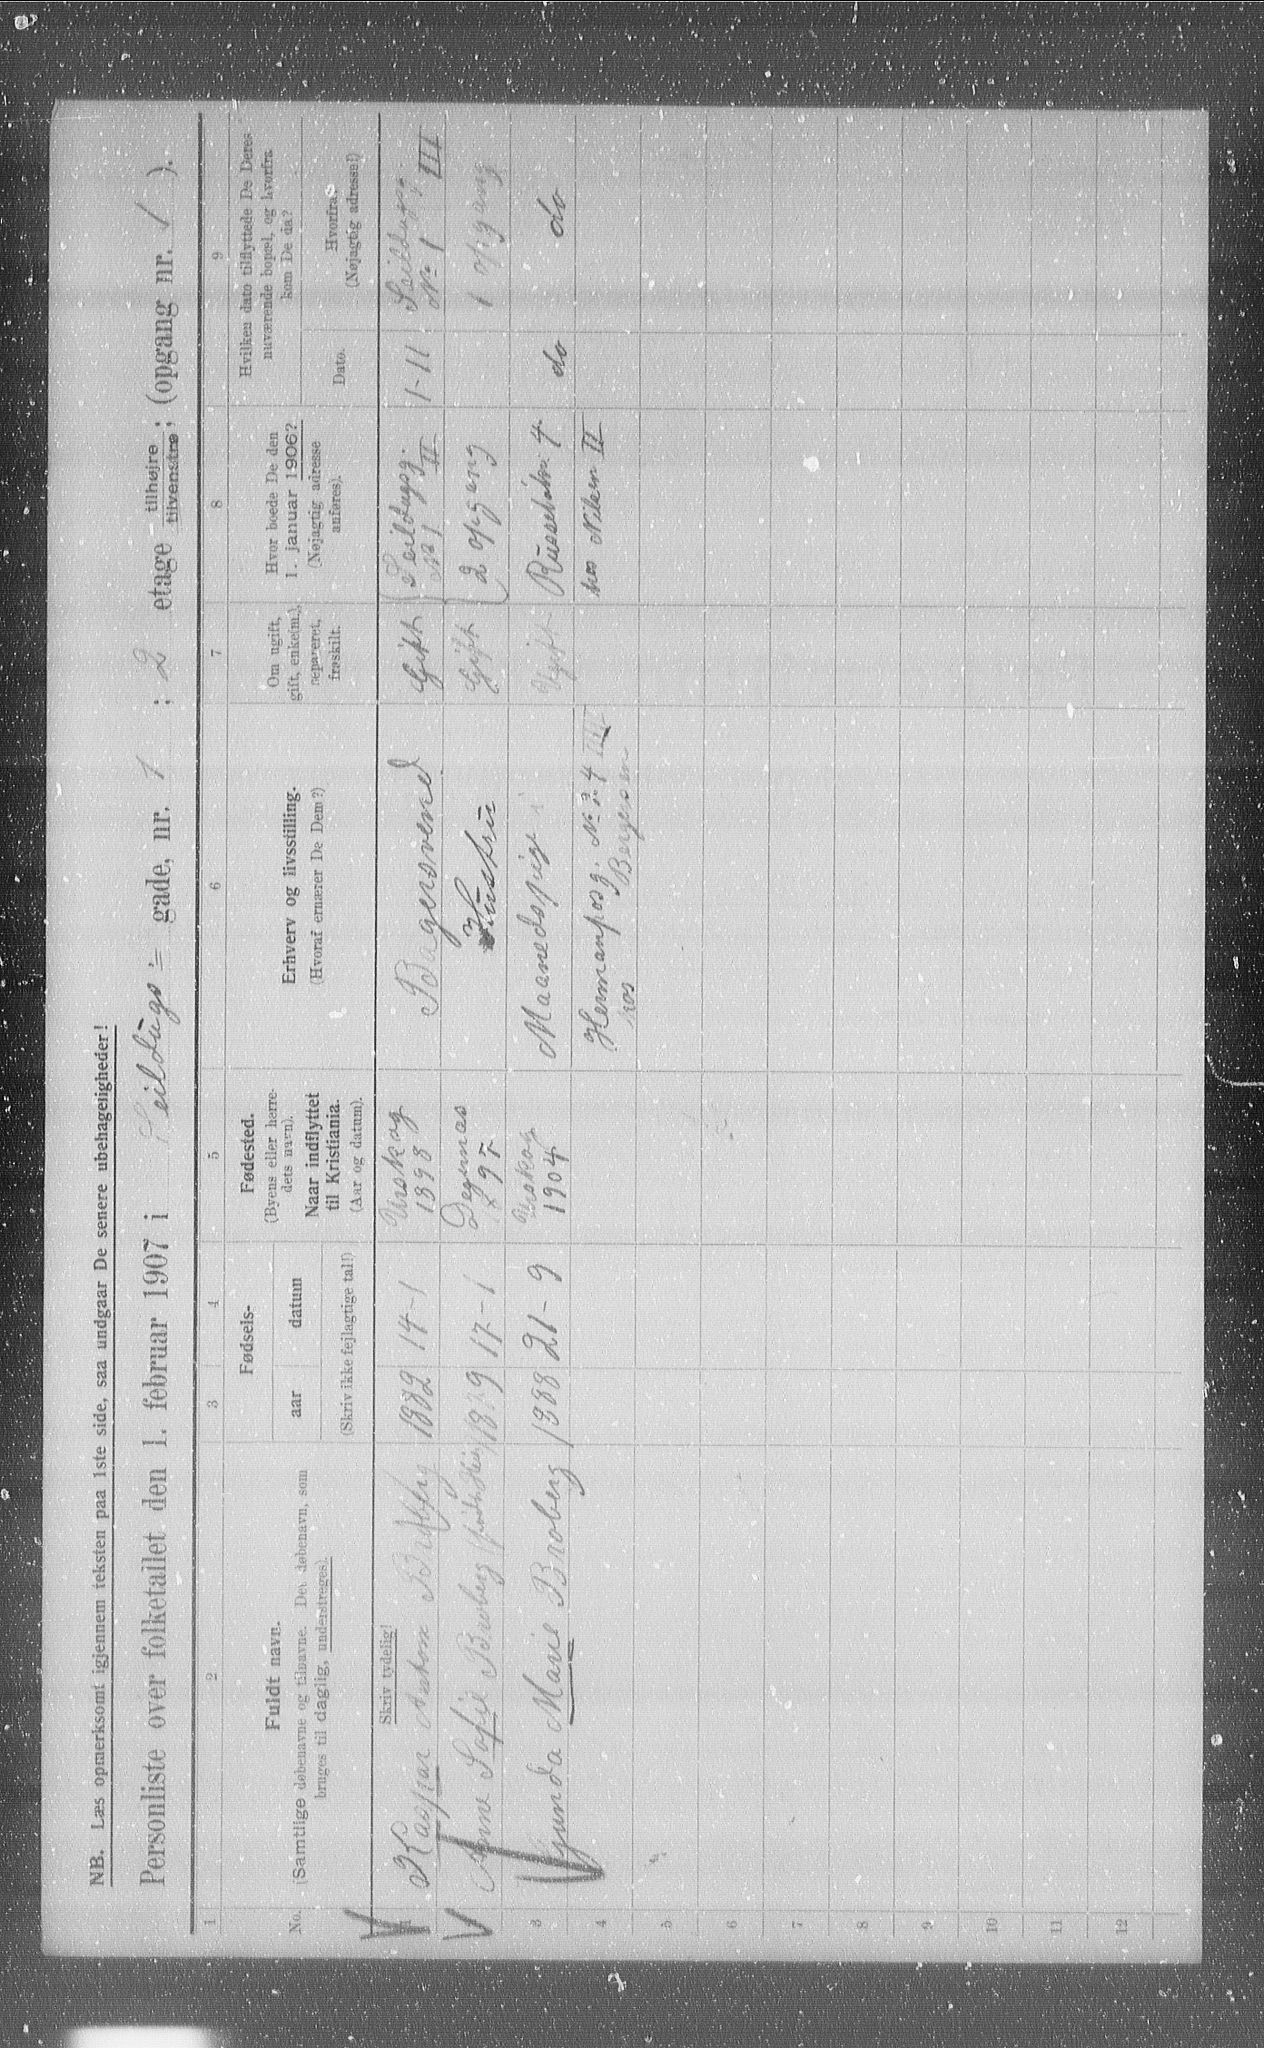 NB. Læs opmerksomt igjennem teksten paa 1ste side, saa undgaar De senere ubehageligheder!
Personliste over folketallet den 1. februar 1907 i Seildugs= gade, nr. 1 ; 2 etage tilhøjre tilvenstre; (opgang nr. 1 ).
1 2 3 4 5 6 7 8 9
No.
Fuldt navn.
(Samtlige døbenavne og tilnavne. Det døbenavn, som
bruges til daglig, understreges).
Fødsels-
aar datum
(Skriv ikke fejlagtige tal!)
Fødested.
(Byens eller herre-
dets navn).
Naar indflyttet
til Kristiania.
(Aar og datum).
Erhverv og livsstilling.
(Hvoraf ernærer De Dem?)
Om ugift,
gift, enke(m.),
separeret,
fraskilt.
Hvor boede De den
1. januar 1906?
(Nøjagtig adresse
anføres).
Hvilken dato tilflyttede De Deres
nuværende bopæl, og hvorfra
kom De da?
Dato.
Hvorfra.
(Nøjagtig adresse!)
Skriv tydelig!
1 Kaspar Anton 1882 14-1 Urskog 1898 Bagersvend Gift Seildugsg. No 1 II 1-11 Seildugsg. No 1 III
2 Anne Sofie Broberg 17-1 Degernæs Hustru Gift 2 opgang 1 opgang
3 Gunda Marie Broberg 1888 21-9 Urskog 1904 Maanedspige i Ugift 4 do do
4 No 24 IIII hos Nilsen II
hos Bergersen
5
6
7
8
9
10
11
12